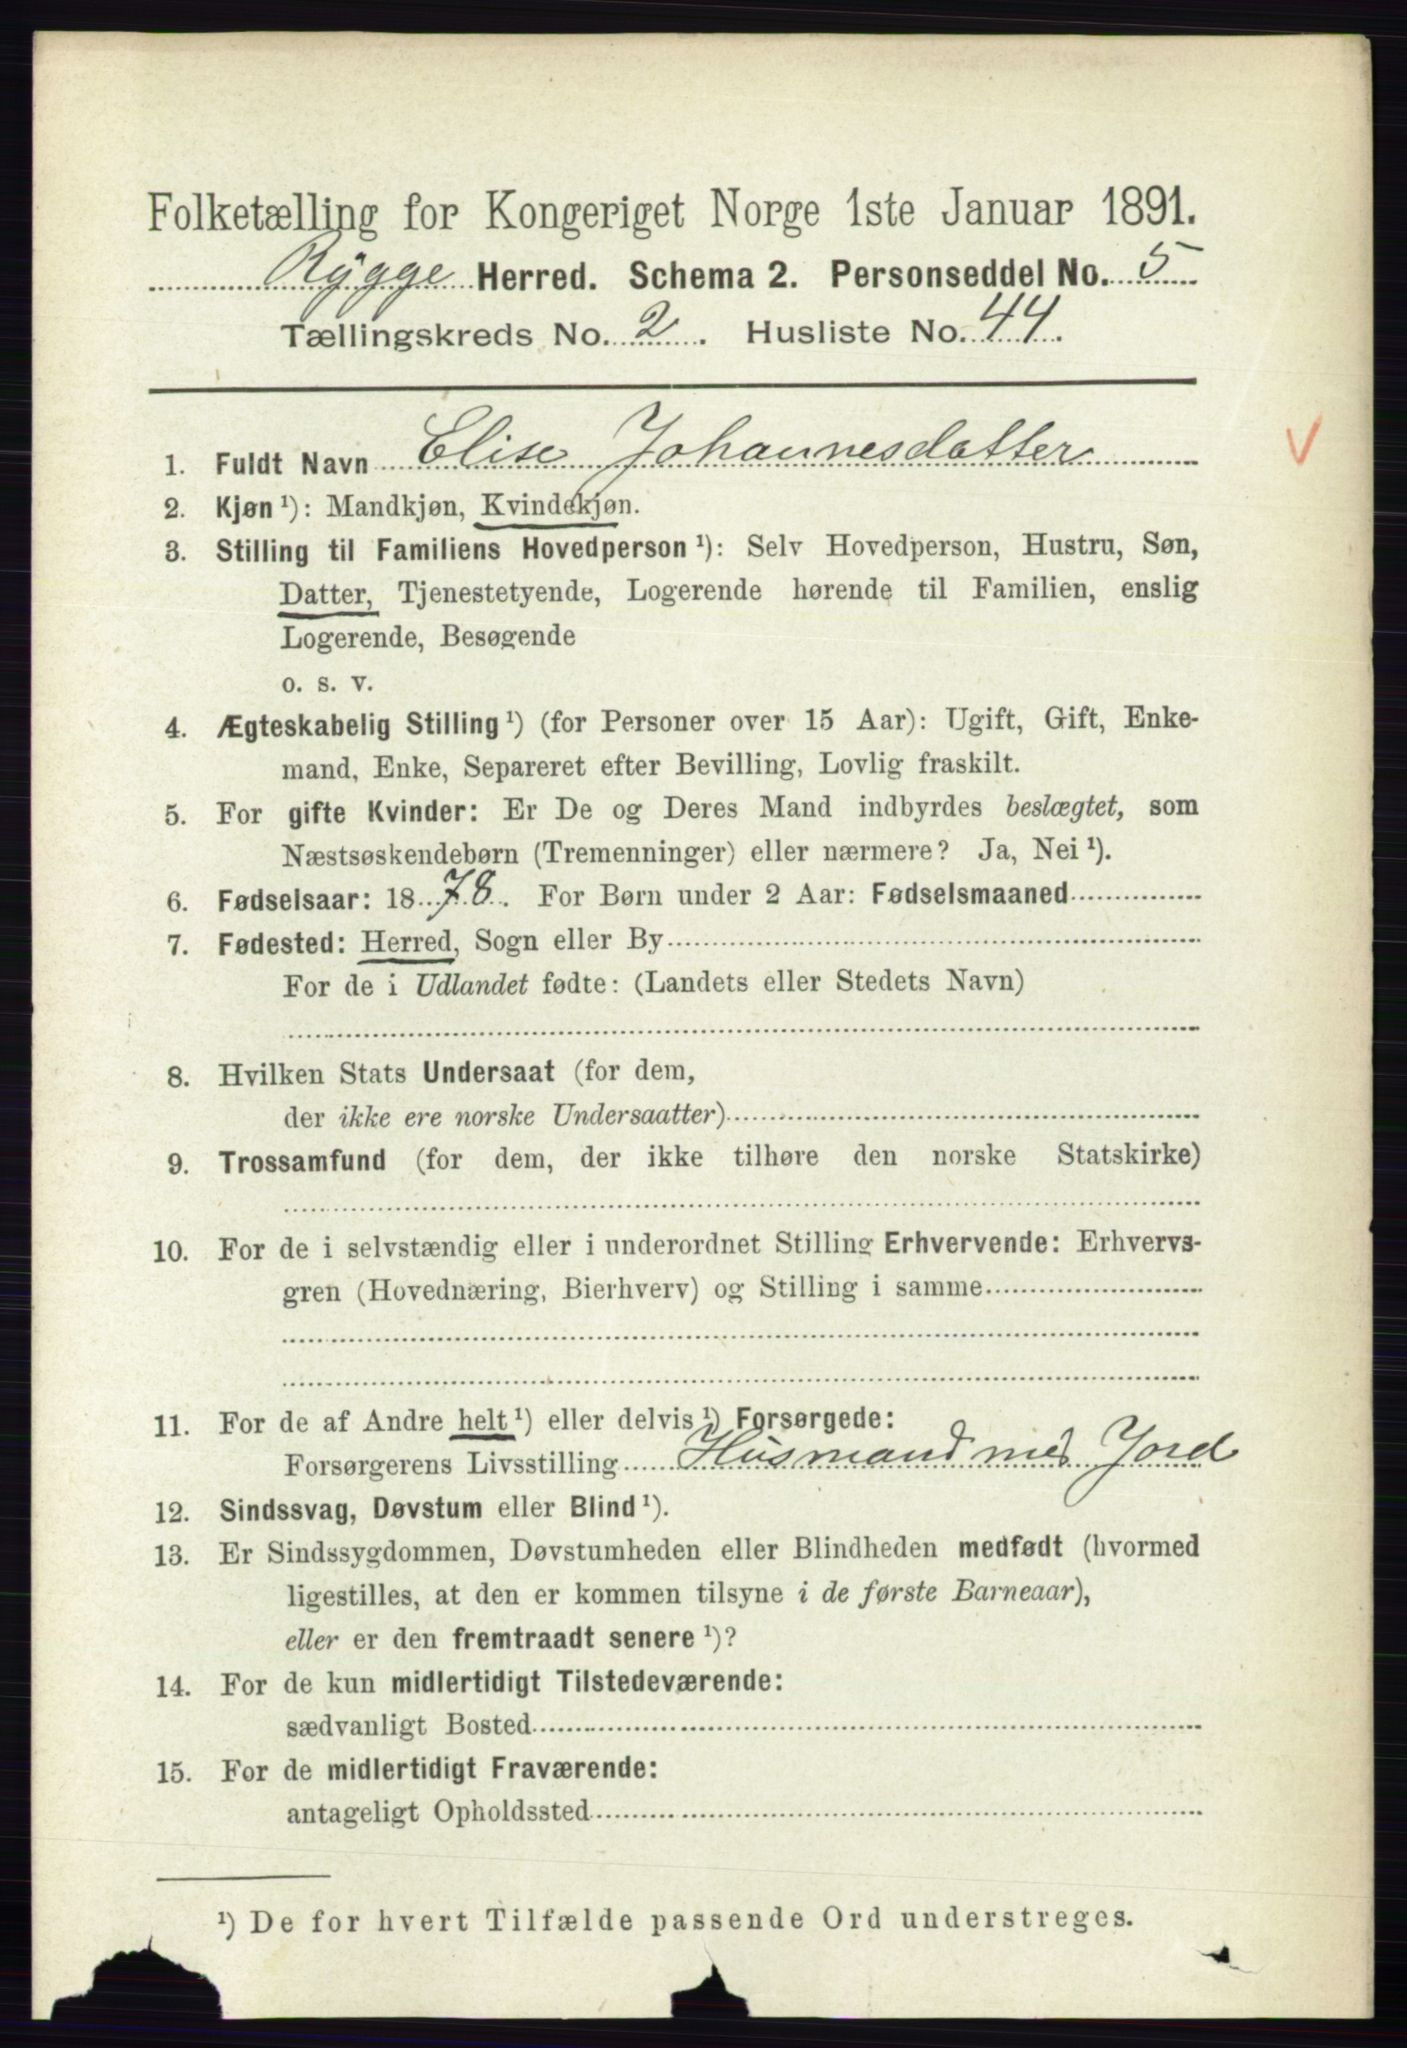 Folketælling for Kongeriget Norge 1ste Januar 1891.
Rygge Herred. Schema 2. Personseddel No. 5
Tællingskreds No. 2. Husliste No. 44.
1. Fuldt Navn Elise Johannesdatter
V
2. Kjøn¹): Mandkjøn, Kvindekjøn.
3. Stilling til Familiens Hovedperson¹): Selv Hovedperson, Hustru, Søn,
Datter, Tjenestetyende, Logerende hørende til Familien, enslig
Logerende, Besøgende
o. s. v.
4. Ægteskabelig Stilling¹) (for Personer over 15 Aar): Ugift, Gift, Enke-
mand, Enke, Separeret efter Bevilling, Lovlig fraskilt.
5. For gifte Kvinder: Er De og Deres Mand indbyrdes beslægtet, som
Næstsøskendebørn (Tremenninger) eller nærmere? Ja, Nei¹).
6. Fødselsaar: 1878. For Børn under 2 Aar: Fødselsmaaned
7. Fødested: Herred, Sogn eller By
For de i Udlandet fødte: (Landets eller Stedets Navn)
8. Hvilken Stats Undersaat (for dem,
der ikke ere norske Undersaatter)
9. Trossamfund (for dem, der ikke tilhøre den norske Statskirke)
10. For de i selvstændig eller i underordnet Stilling Erhvervende: Erhvervs-
gren (Hovednæring, Bierhverv) og Stilling i samme
11. For de af Andre helt¹) eller delvis¹) Forsørgede:
Forsørgerens Livsstilling Husmand med Jord
12. Sindssvag, Døvstum eller Blind¹).
13. Er Sindssygdommen, Døvstumheden eller Blindheden medfødt (hvormed
ligestilles, at den er kommen tilsyne i de første Barneaar),
eller er den fremtraadt senere¹)?
14. For de kun midlertidigt Tilstedeværende:
sædvanligt Bosted
15. For de midlertidigt Fraværende:
antageligt Opholdssted
¹) De for hvert Tilfælde passende Ord understreges.